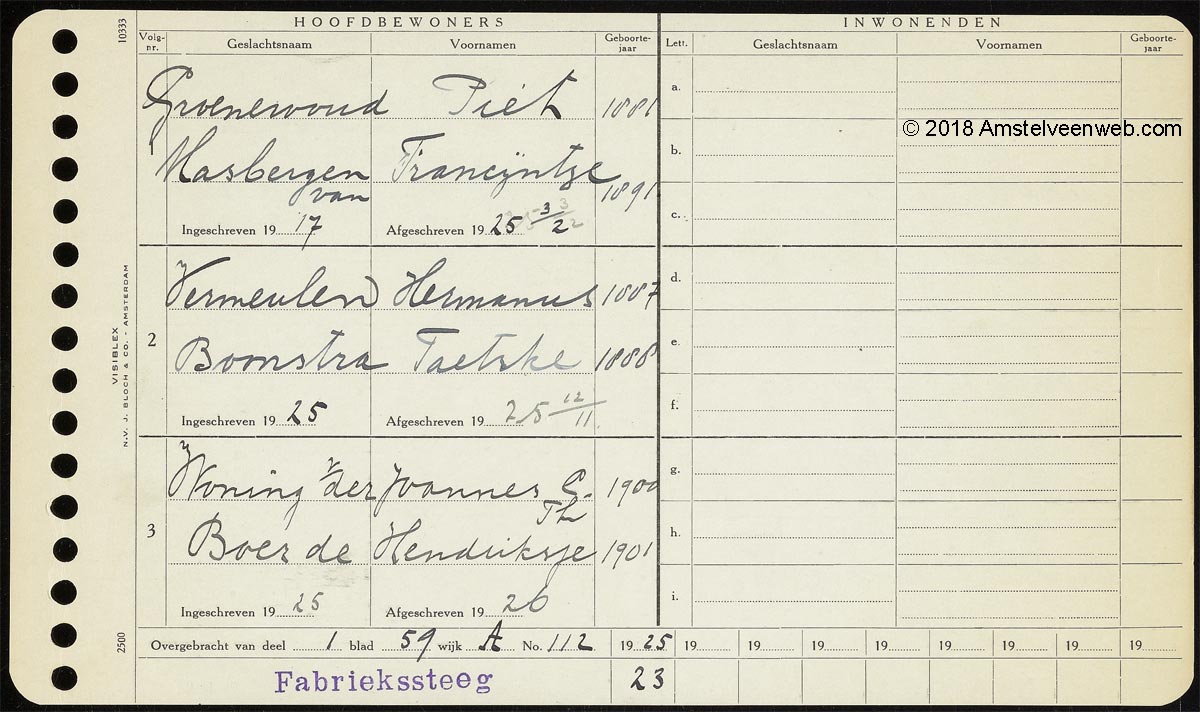 HOOFDBEWONERS
INWONENDEN
10333
Volg-nr. Geslachtsnaam Voornamen Geboorte-jaar
Lett. Geslachtsnaam Voornamen Geboorte-jaar
Groenewoud Piet 1881
Masbergen van Francijntje 1891
Ingeschreven 19 17 Afgeschreven 19 25 3/2
2
Vermeulen Hermanus 1887
Boomstra Taetske 1888
Ingeschreven 19 25 Afgeschreven 19 25 12/11
3
Woning v der Joannes C. Th 1900
Boer de Hendriksje 1901
Ingeschreven 19 25 Afgeschreven 19 26
a.
b.
c.
d.
e.
f.
g.
h.
i.
© 2018 Amstelveenweb.com
VISIBLEX
N.V. J. BLOCH & CO. - AMSTERDAM
2500
Overgebracht van deel 1 blad 59 wijk A No. 112 19 25 19 19 19 19 19 19 19 19
Fabriekssteeg 23